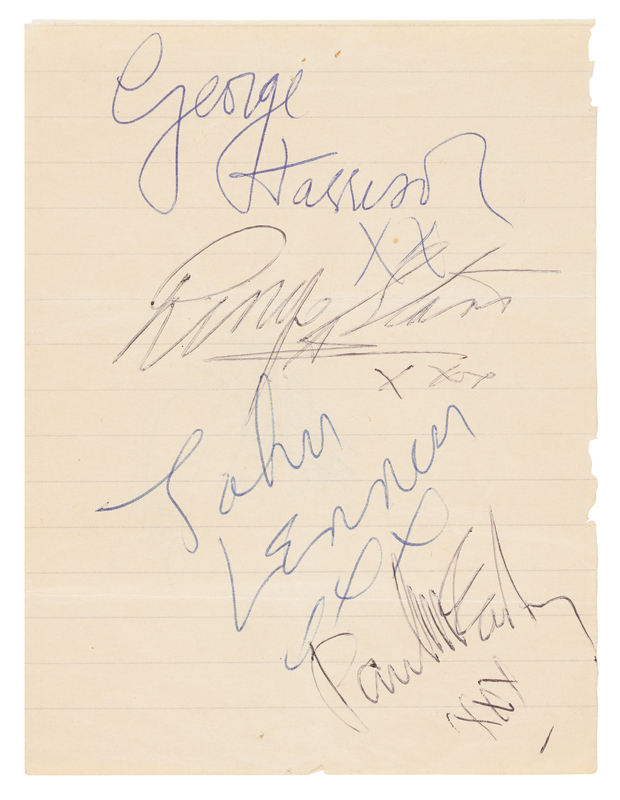 George
Harrison
XX
Ringo Starr
X XXX
John
Lennon
XXX
Paul McCartney
XXX